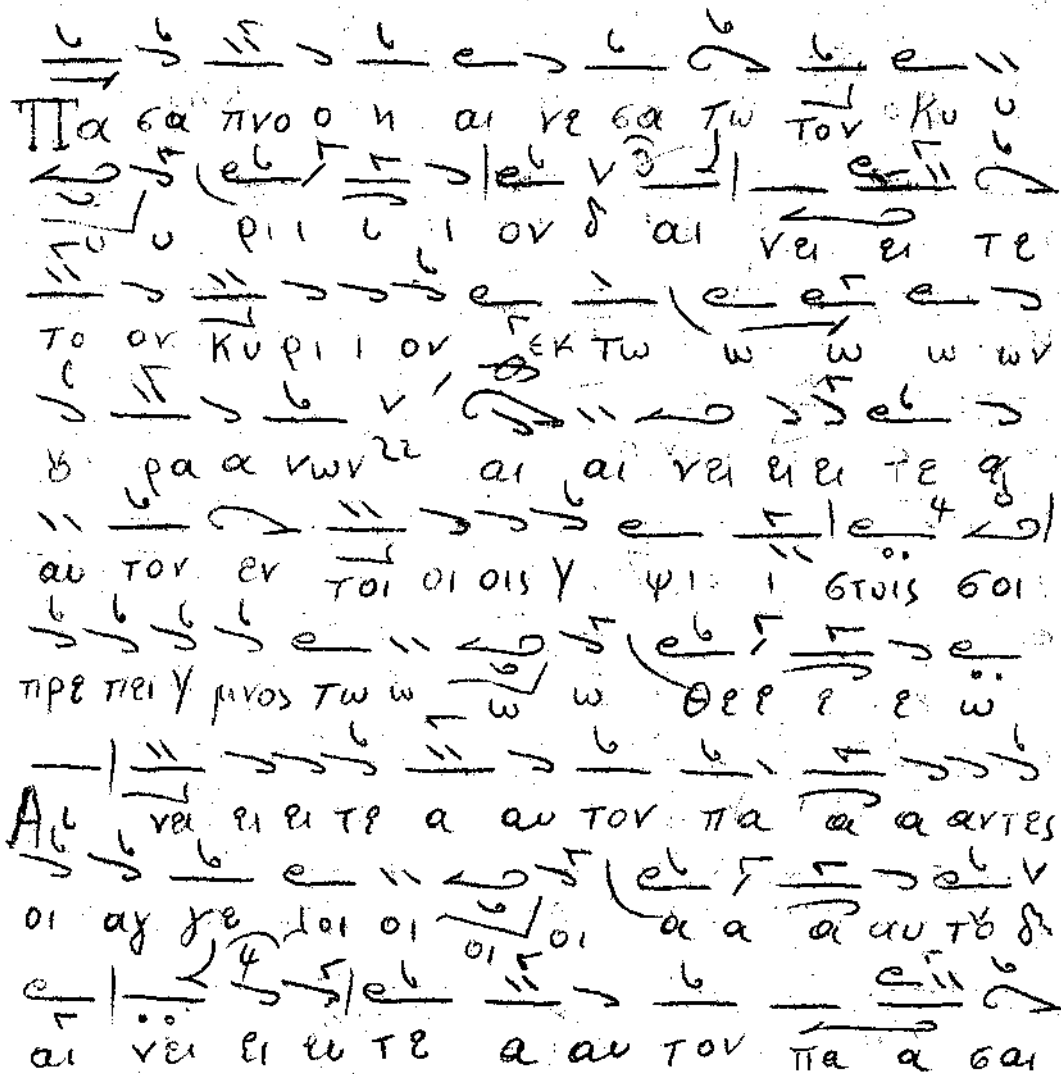 Πα σα πνο ο η αι νε σα τω τον Κυ υ
υ υ ρι ι ι ι ον δ αι νει ει τε
το ον Κυ ρι ι ον εκ τω ω ω ω ων
ȣ ρα α νων αι αι νει ει ει τε
αυ τον εν τοι οι οις υ ψι ι στοις σοι
πρε πει υ μνος τω ω ω ω θε ε ε ε ω
Αι νει ει ει τε α αυ τον πα α α αντες
οι αγ γε λοι οι οι οι α α α αυ τȣ δ
αι νει ει ει τε α αυ τον πα α σαι